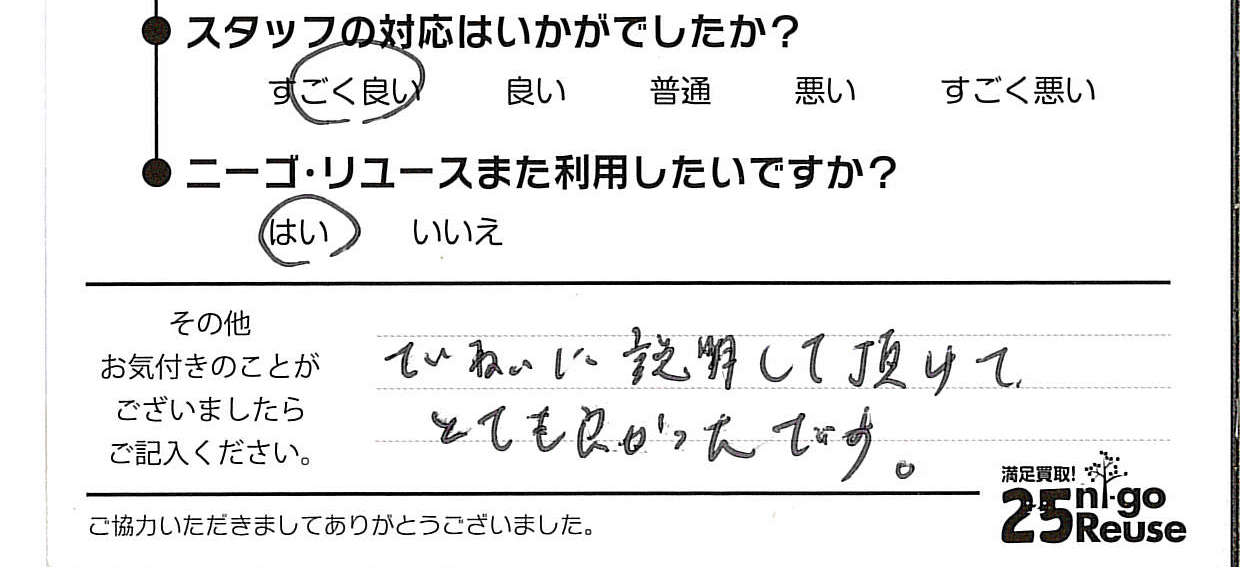 スタッフの対応はいかがでしたか？
すごく良い 良い 普通 悪い すごく悪い
ニーゴ・リユースまた利用したいですか？
はい いいえ
その他
お気付きのことが
ございましたら
ご記入ください。
ていねいに説明して頂けて
とても良かったです。
満足買取!
25 ni-go
Reuse
ご協力いただきましてありがとうございました。